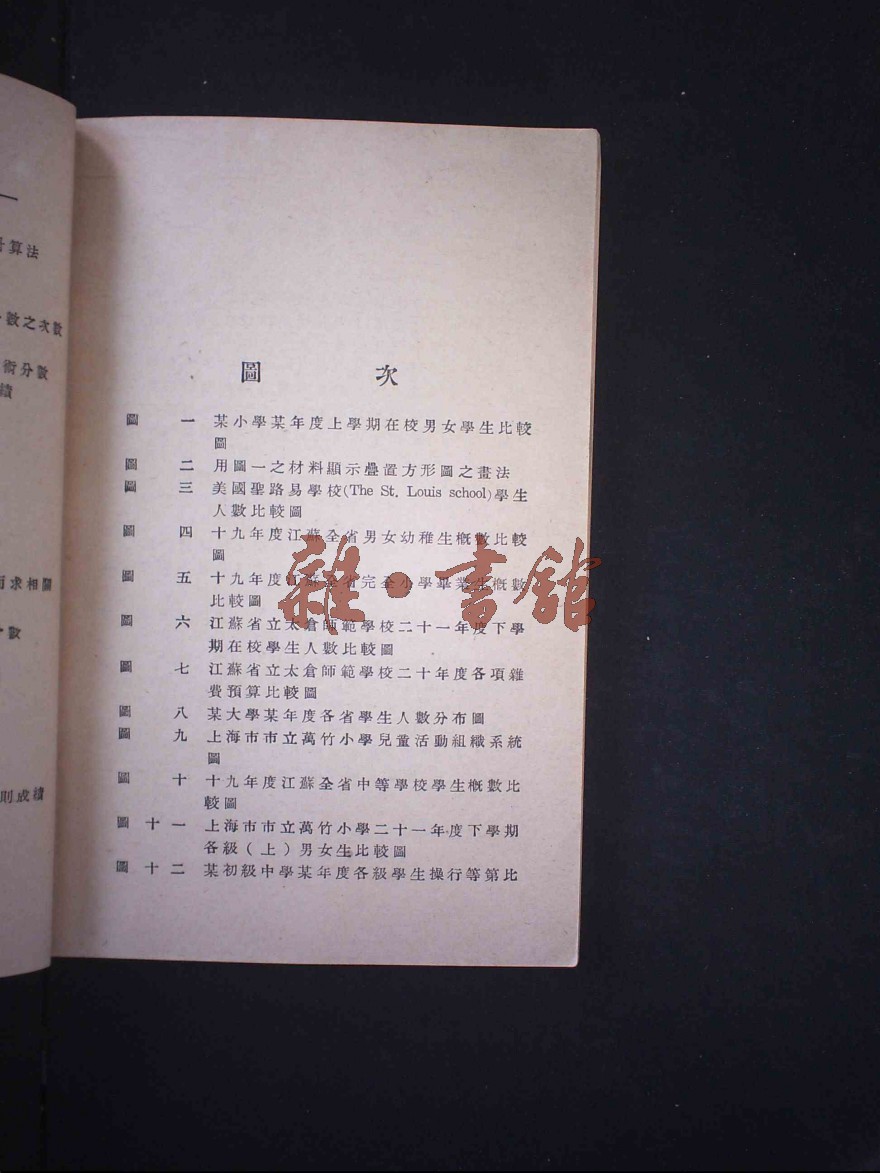 計算法
數之次數
術分數
績
而求相關
分數
則成績
圖次
圖一 某小學某年度上學期在校男女學生比較
圖
圖二 用圖一之材料顯示疊置方形圖之畫法
圖三 美國聖路易學校(The St. Louis school)學生
人數比較圖
圖四 十九年度江蘇全省男女幼稚生概數比較
圖
圖五 十九年度江蘇全省完全小學畢業生概數
比較圖
圖六 江蘇省立太倉師範學校二十一年度下學
期在校學生人數比較圖
圖七 江蘇省立太倉師範學校二十年度各項雜
費預算比較圖
圖八 某大學某年度各省學生人數分布圖
圖九 上海市市立萬竹小學兒童活動組織系統
圖
圖十 十九年度江蘇全省中等學校學生概數比
較圖
圖十一 上海市市立萬竹小學二十一年度下學期
各級(上)男女生比較圖
圖十二 某初級中學某年度各級學生操行等第比
雜·書館